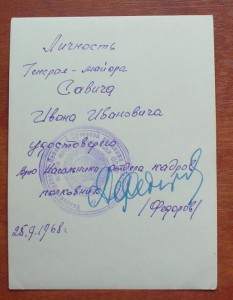 Личность
Генерал-майора
Савича
Ивана Ивановича
удостоверяю
Врио начальника отдела кадров
полковник
(Федоров)
25.9.1968г